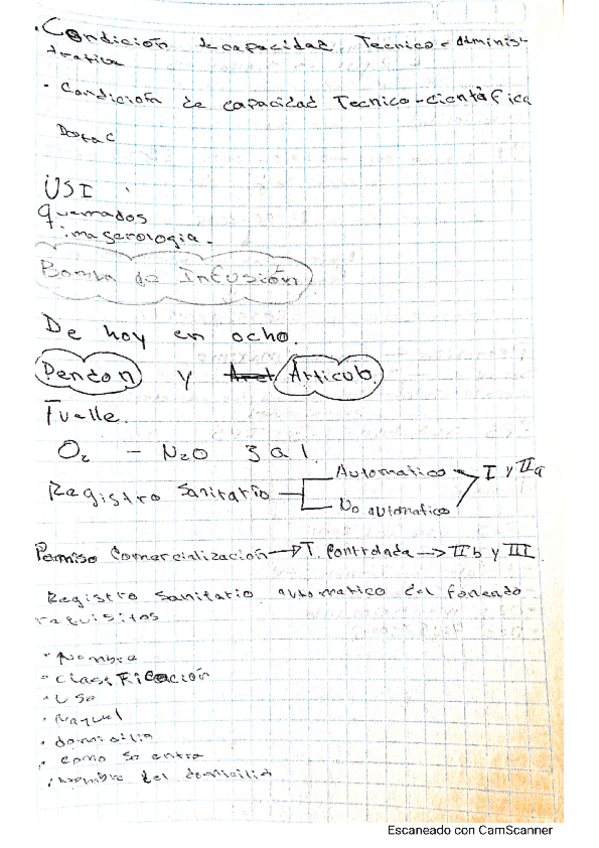 . Condición de capacidad Tecnico-adminis-
trativa
· Condición de capacidad Tecnico-cientifica
USI
quemados
imagenologia.
Bomba de Infusión
De hoy en ocho.
Pendon y Articulo.
Fuelle.
O₂ - N₂O 3 a 1.
Automatico
I y IIa
Registro Sanitario
No automatico
Permiso Comercialización → T. Controlada → IIb y III
Registro Sanitario automatico del
requisitos
· Nombre
· Clasificación
· Uso
· domicilio
· como se entra
· Nombre del domicilio
Escaneado con CamScanner